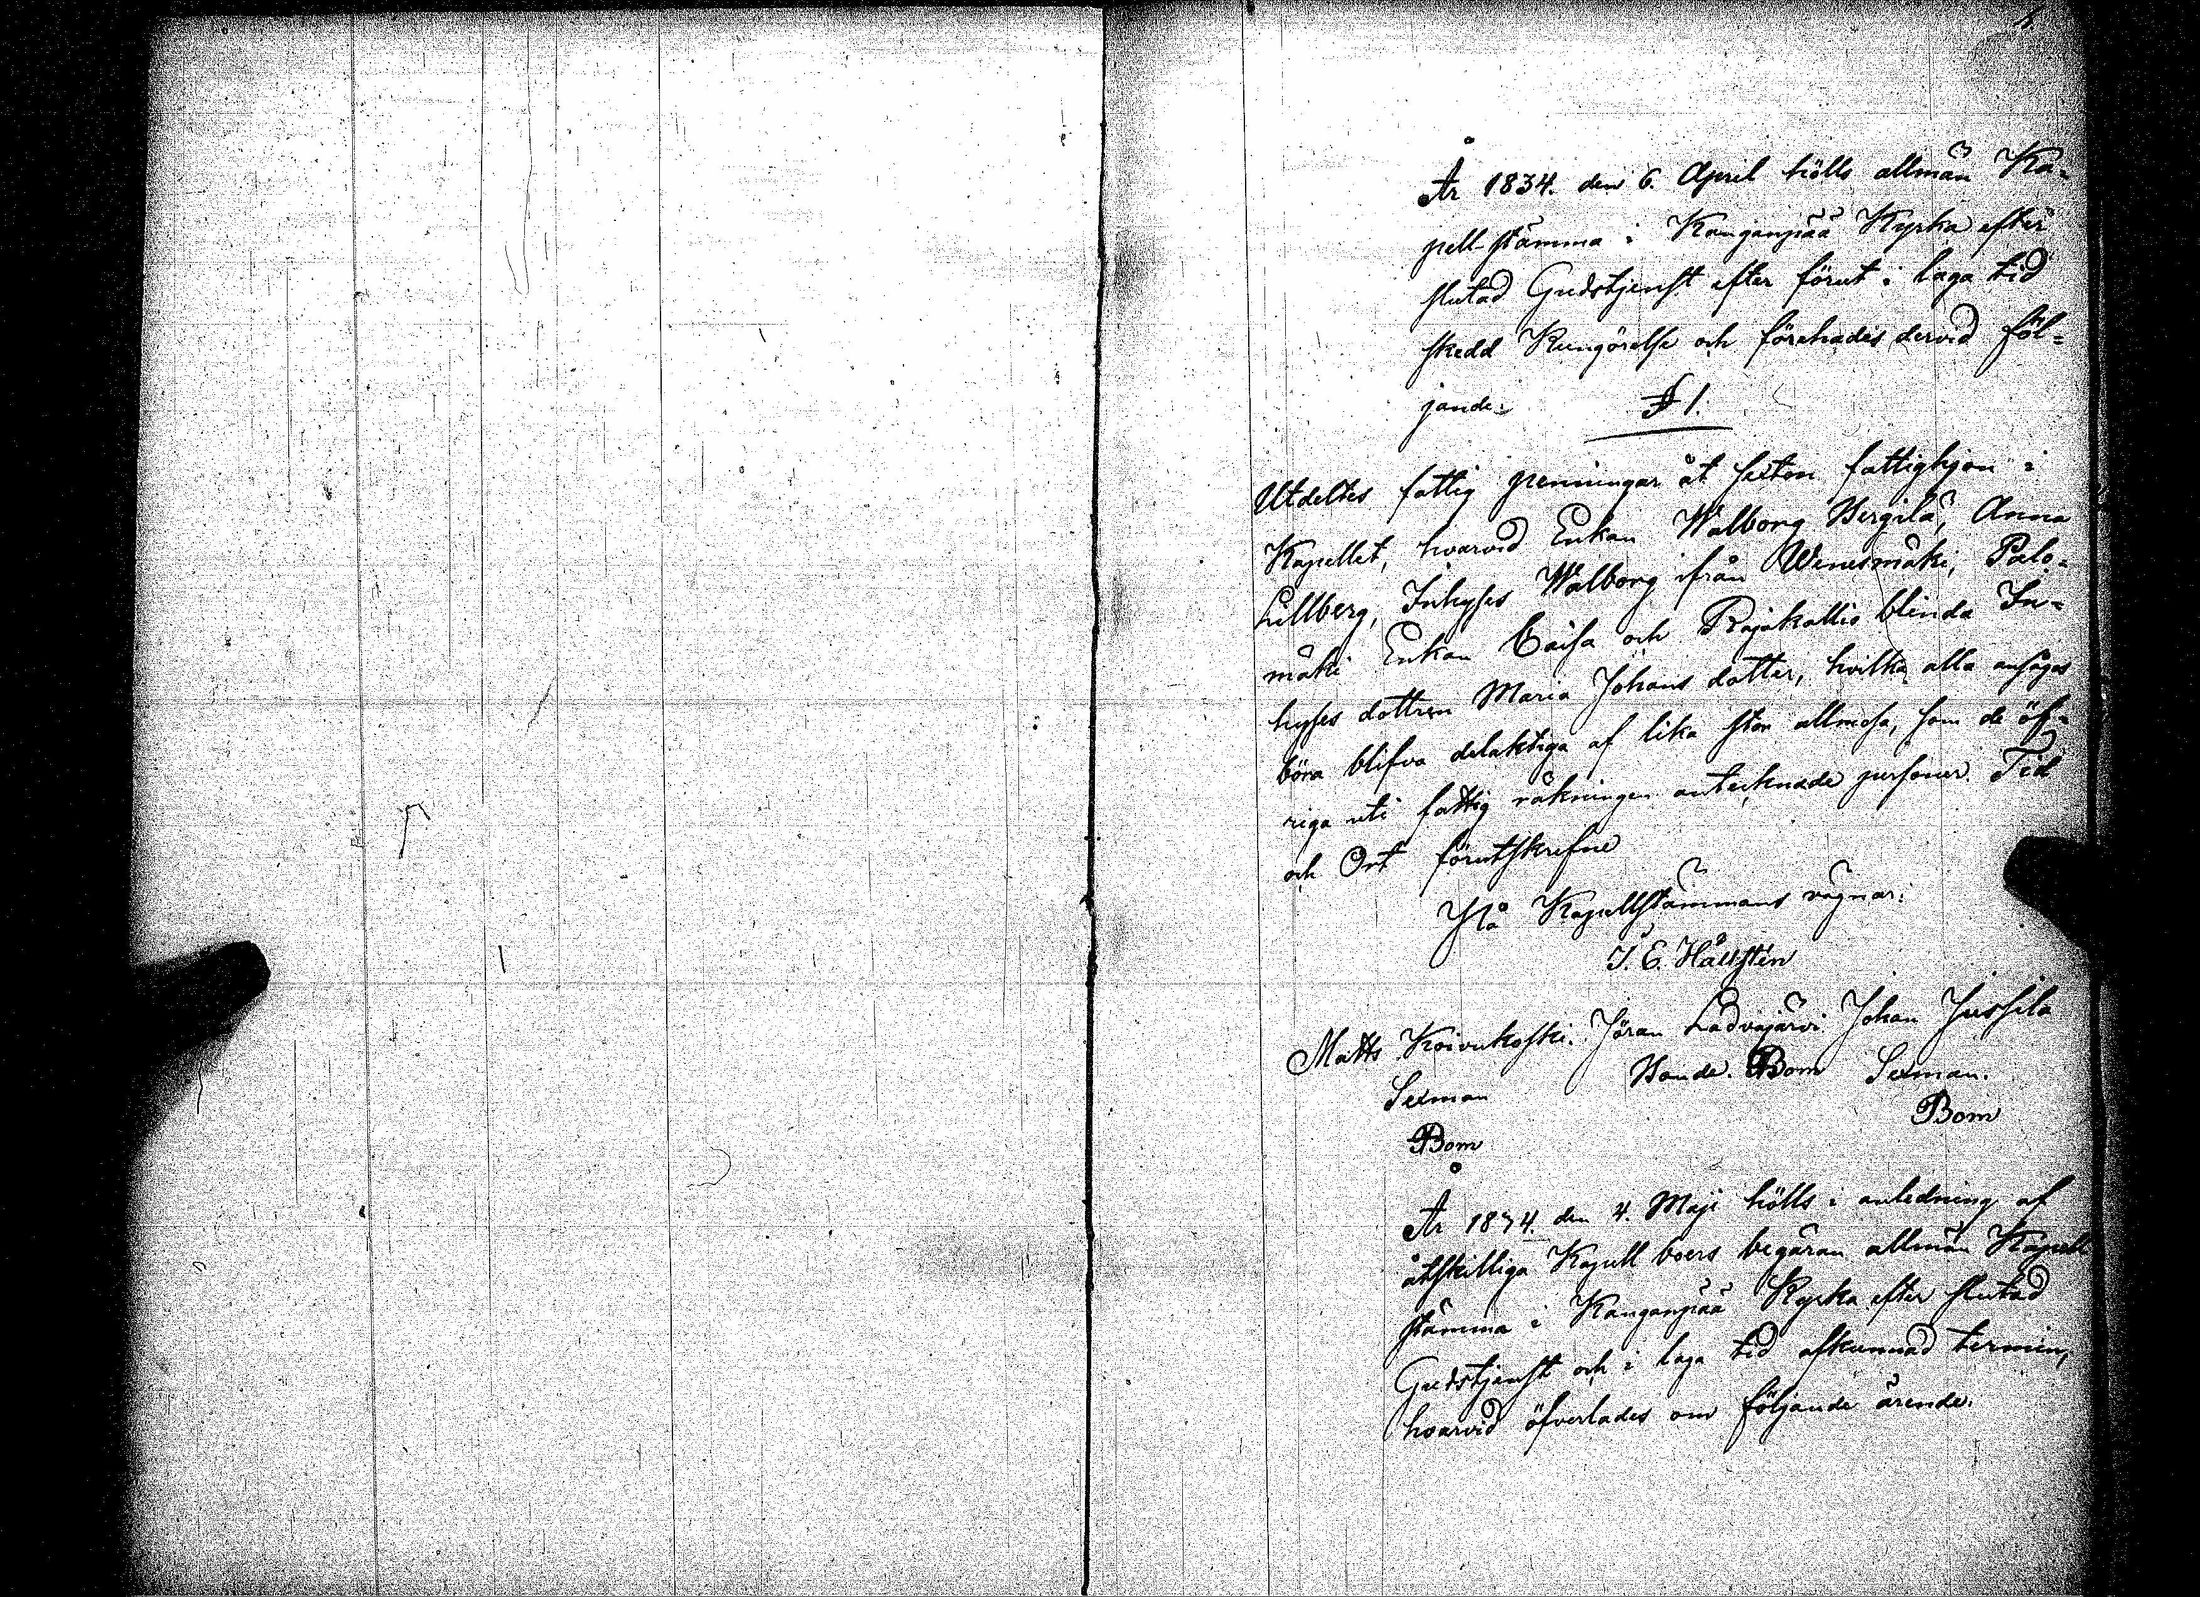 År 1834. den 6. April hölls allmän Ka-
pell-stämma i Kanganpää Kyrka efter
slutad Gudstjenst efter förut i laga tid
skedd Kungörelse och förehades dervid föl-
jande:
§ 1.
Utdeltes fattig penningar åt sexton fattighjon i
Kapellet, hvarvid Enkan Walborg Bergilä, Anna
Lillberg, Inhyses Walborg ifrån Wenesmäki, Palo-
mäki Enkan Caisa och Rajakallio blinda In-
hyses dottren Maria Johans dotter, hvilka alla ansågos
böra blifva delaktiga af lika stor allmosa, som de öf-
riga uti fattig räkningen antecknade personer. Tid
och Ort förutskrefne
På Kapellstämmans vägnar:
J. E. Hällstén
Matts Koivukoski. Jöran Ladvajärvi Johan Jussila
Sexman Bonde. Bom Sexman.
Bom Bom
År 1834. den 4. Maji hölls i anledning af
åtskilliga Kapell boers begäran allmän Kapell
stämma i Kanganpää Kyrka efter slutad
Gudstjenst och i laga tid afkunnad termin,
hvarvid öfverlades om följande ärende.